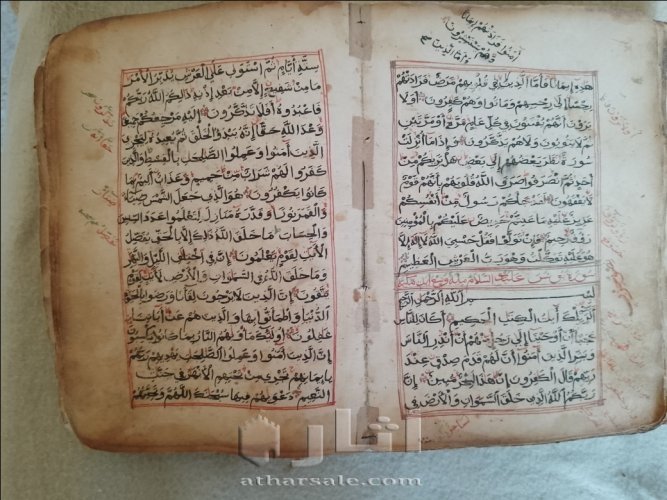 امنوا فزادتهم ايمانا
وهم يستبشرون
واما الذين
هذه ايمانا فأما الذين في قلوبهم مرض فزادتهم
رجسا الى رجسهم وماتوا وهم كفرون اولا
يرون انهم يفتنون في كل عام مرة او مرتين
ثم لا يتوبون ولا هم يذكرون واذا ما انزلت
سورة نظر بعضهم الى بعض هل يريكم من
احد ثم انصرفوا صرف الله قلوبهم بانهم قوم
لا يفقهون لقد جاءكم رسول من انفسكم
عزيز عليه ما عنتم حريص عليكم بالمؤمنين
رءوف رحيم فان تولوا فقل حسبي الله لا اله الا
هو عليه توكلت وهو رب العرش العظيم
سورة يونس عليه السلام
بسم الله الرحمن الرحيم
الر تلك ايت الكتب الحكيم اكان للناس
عجبا ان اوحينا الى رجل منهم ان انذر الناس
وبشر الذين امنوا ان لهم قدم صدق عند
ربهم قال الكفرون ان هذا لسحر مبين ان
ربكم الله الذي خلق السموات والارض في
ستة أيام ثم استوى على العرش يدبر الامر
ما من شفيع الا من بعد اذنه ذلكم الله ربكم
فاعبدوه أفلا تذكرون اليه مرجعكم جميعا
وعد الله حقا إنه يبدؤا الخلق ثم يعيده ليجزي
الذين آمنوا وعملوا الصلحت بالقسط والذين
كفروا لهم شراب من حميم وعذاب اليم بما
كانوا يكفرون هو الذي جعل الشمس ضياء
والقمر نورا وقدره منازل لتعلموا عدد السنين
والحساب ما خلق الله ذلك إلا بالحق يفصل
الآيت لقوم يعلمون إن في اختلف الليل والنهار
وما خلق الله في السموات والأرض لآيت لقوم
يتقون إن الذين لا يرجون لقاءنا ورضوا بالحيوة
الدنيا واطمأنوا بها والذين هم عن آياتنا
غفلون أولئك مأوهم النار بما كانوا يكسبون
إن الذين آمنوا وعملوا الصلحت يهديهم ربهم
بايمانهم تجري من تحتهم الأنهر في جنت
النعيم دعويهم فيها سبحنك اللهم وتحيتهم
اثارة
atharsale.com